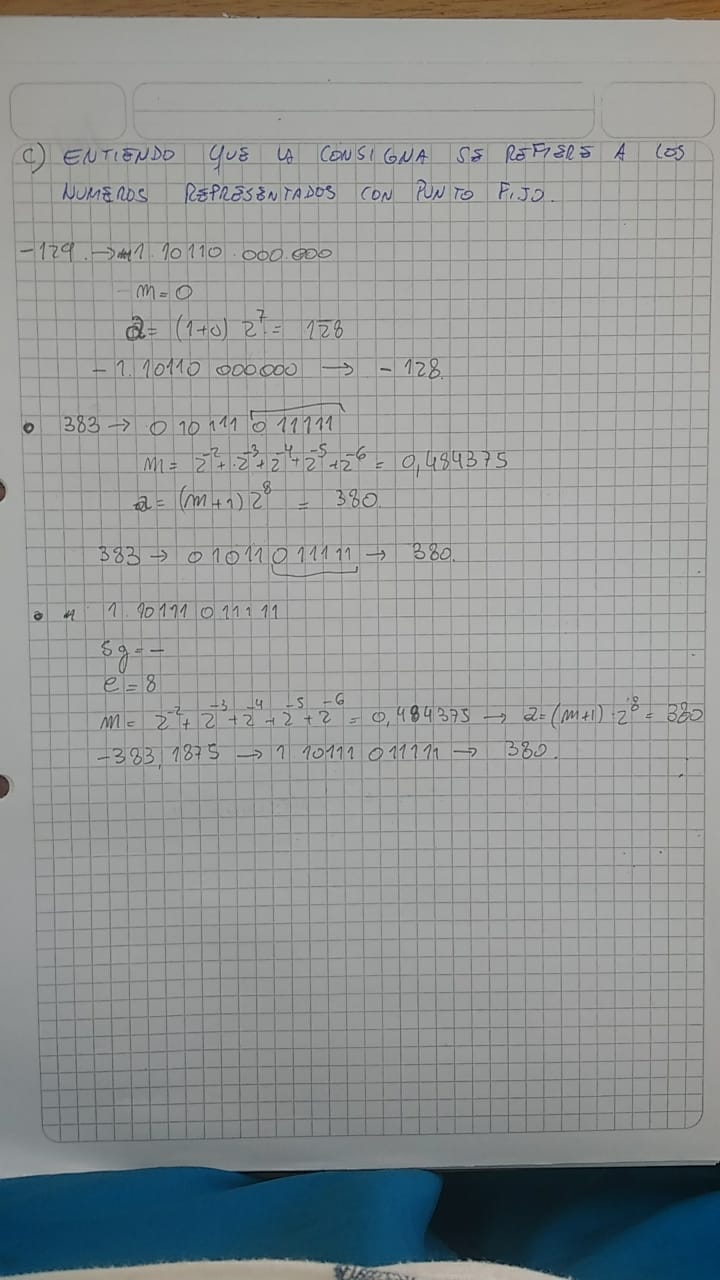 C) ENTIENDO QUE LA CONSIGNA SE REFIERE A LOS
NUMEROS REPRESENTADOS CON PUNTO FIJO.
-129. → 1. 10110 . 000.000
m=0
a= (1+0) 2^7 = 128
- 1. 10110 000000 → - 128.
• 383 → 0 10 111 0 11111
m= 2^-2 + 2^-3 + 2^-4 + 2^-5 + 2^-6 = 0,484375
a= (m+1) 2^8 = 380.
383 → 0 1011 0 11111 → 380.
• 1. 10111 0 11111
Sg= -
e=8
m= 2^-2 + 2^-3 + 2^-4 + 2^-5 + 2^-6 = 0,484375 → a=(m+1)·2^8 = 380
-383,1875 → 1 10111 011111 → 380.